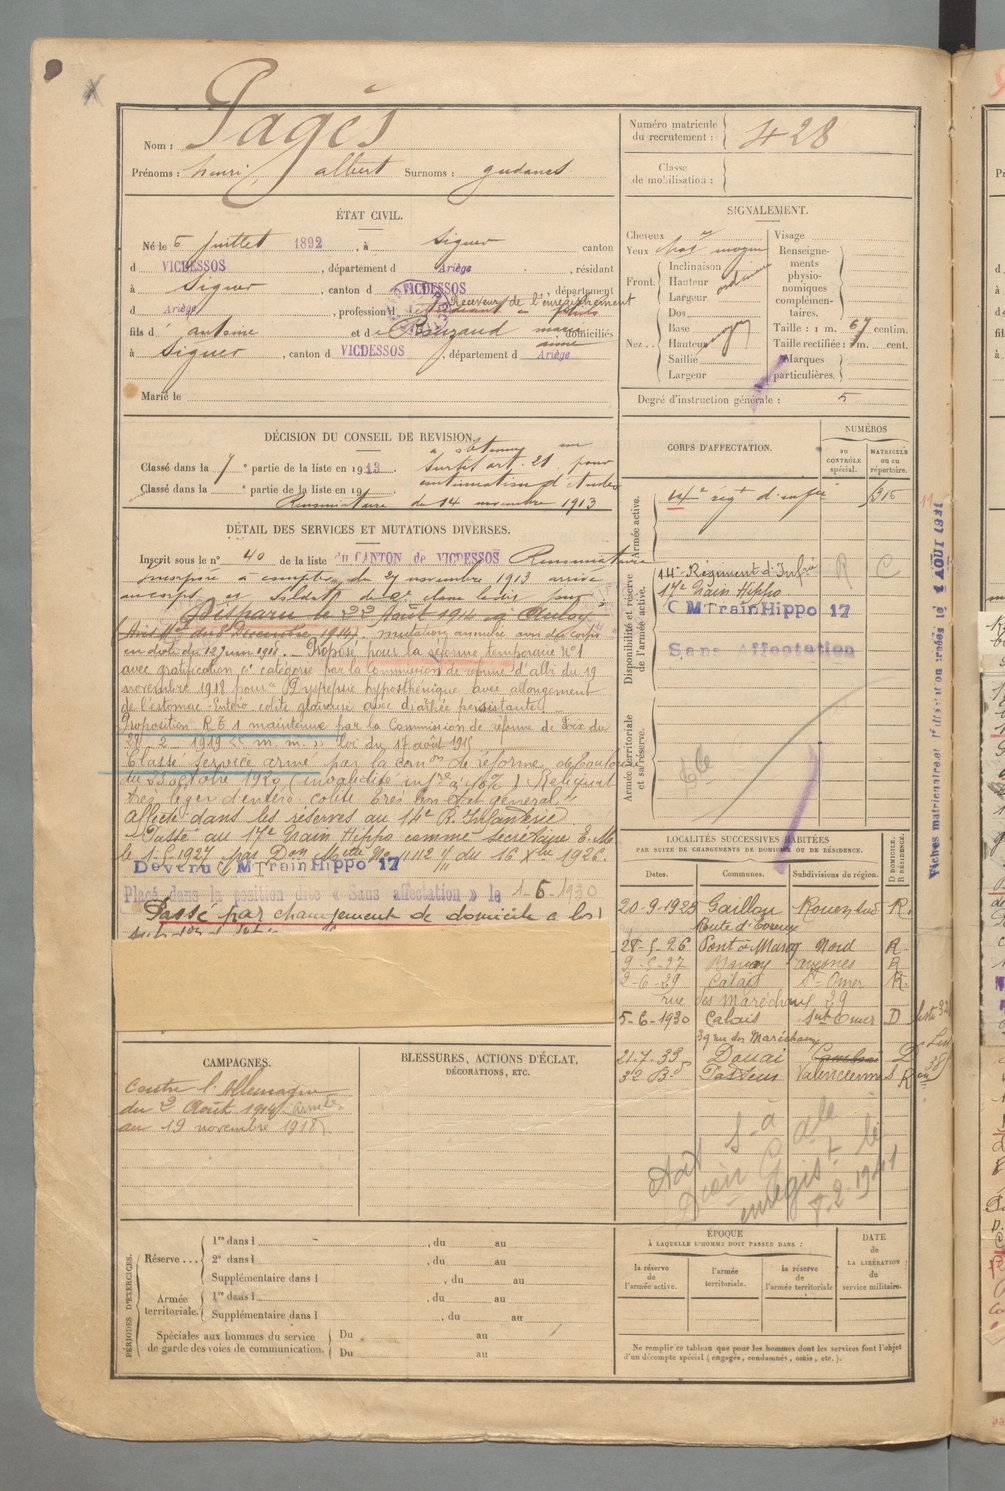 Nom : Pagès
Prénoms : henri albert Surnoms : gudanes
Numéro matricule du recrutement : 428
Classe de mobilisation :
ÉTAT CIVIL.
Né le 5 juillet 1892, à Siguer canton
d VICDESSOS, département d Ariège, résidant
à Siguer, canton d VICDESSOS, département
d Ariège, profession d Receveur de l'enregistrement
fils d' antoine et d domiciliés
à Siguer, canton d VICDESSOS, département d Ariège
Marié le
SIGNALEMENT.
Cheveux
Yeux
Front. Inclinaison
Hauteur
Largeur
Nez. Dos
Base
Hauteur
Saillie
Largeur
Visage
Renseignements physionomiques complémentaires.
Taille : 1 m. 67 centim.
Taille rectifiée : 1m. cent.
Marques particulières.
Degré d'instruction générale : 5
DÉCISION DU CONSEIL DE REVISION.
Classé dans la 7e partie de la liste en 1913. a obtenu un
sursis art. 21 pour
Classé dans la e partie de la liste en 19 continuation d'études
du 14 novembre 1913
DÉTAIL DES SERVICES ET MUTATIONS DIVERSES.
Inscrit sous le n° 40 de la liste du CANTON de VICDESSOS
Incorporé à compter du 27 novembre 1913 arrivé
au corps et soldat de 2e classe le dit jour
Disparu le 22 août 1914 à
(Avis Mel du 8 Décembre 1914). mutation annulée avis du corps
en date du 12 juin 1918. - Proposé pour la réforme temporaire N°1
avec gratification 6e catégorie par la Commission de réforme d'albi du 19
novembre 1918 pour Dyspepsie hyposthénique avec allongement
de l'estomac. Entéro colite glaireuse avec diarrhée persistante.
Proposition R.T. 1 maintenue par la Commission de réforme de Foix du
28-2-1919 << m.m. >> Loi du 17 août 1915
Classé Service armé par la Comon de réforme de Toulouse
du 23 octobre 1920 (invalidité infre à 10%) Reliquat
très léger d'entéro colite très bon état général
affecté dans les réserves au 14e R. Infanterie.
Passé au 17e Train Hippo comme Secrétaire E.M.
le 1.5.1927 par Don Mlle No 11112 du 16 Xbre 1926.
Devenu C M Train Hippo 17
Placé dans la position dite « Sans affectation » le 1-5-1930
Passé par changement de domicile à la
CORPS D'AFFECTATION.
NUMÉROS
AU CONTRÔLE spécial.
MATRICULE ou au répertoire.
Armée active.
14e régt d'infie
Disponibilité et réserve de l'armée active.
14e Régiment d'Infie R C
17e Train Hippo
C M Train Hippo 17
Sans Affectation
Armée territoriale et sa réserve.
LOCALITÉS SUCCESSIVES HABITÉES
PAR SUITE DE CHANGEMENTS DE DOMICILE OU DE RÉSIDENCE.
Dates. Communes. Subdivisions de région. D DOMICILE. R RÉSIDENCE.
20-9-1923 Gaillon Rouen Sud R.
Route d'Evreux
28-5-26 Pont à Marcq Nord R.
9-5-27 Bavay avesnes R
2-6-29 Calais St-Omer R.
rue des Maréchaux, 39
5-6-1930 Calais Snt Omer D
39 rue des Maréchaux
21-7-33 Douai Cambrai D
32 Bd Pasteur Valenciennes R
CAMPAGNES.
Contre l'Allemagne
du 2 Août 1914
au 19 novembre 1918
BLESSURES, ACTIONS D'ÉCLAT, DÉCORATIONS, ETC.
enregist
8.2.1941
PÉRIODES D'EXERCICES.
Réserve ... 1re dans l , du au
2e dans l , du au
Supplémentaire dans l , du au
Armée territoriale. 1re dans l , du au
Supplémentaire dans l , du au
Spéciales aux hommes du service de garde des voies de communication. Du au
Du au
ÉPOQUE
À LAQUELLE L'HOMME DOIT PASSER DANS :
la réserve de l'armée active.
l'armée territoriale.
la réserve de l'armée territoriale
DATE de LA LIBÉRATION du service militaire.
Ne remplir ce tableau que pour les hommes dont les services font l'objet
d'un décompte spécial (engagés, condamnés, omis, etc.).